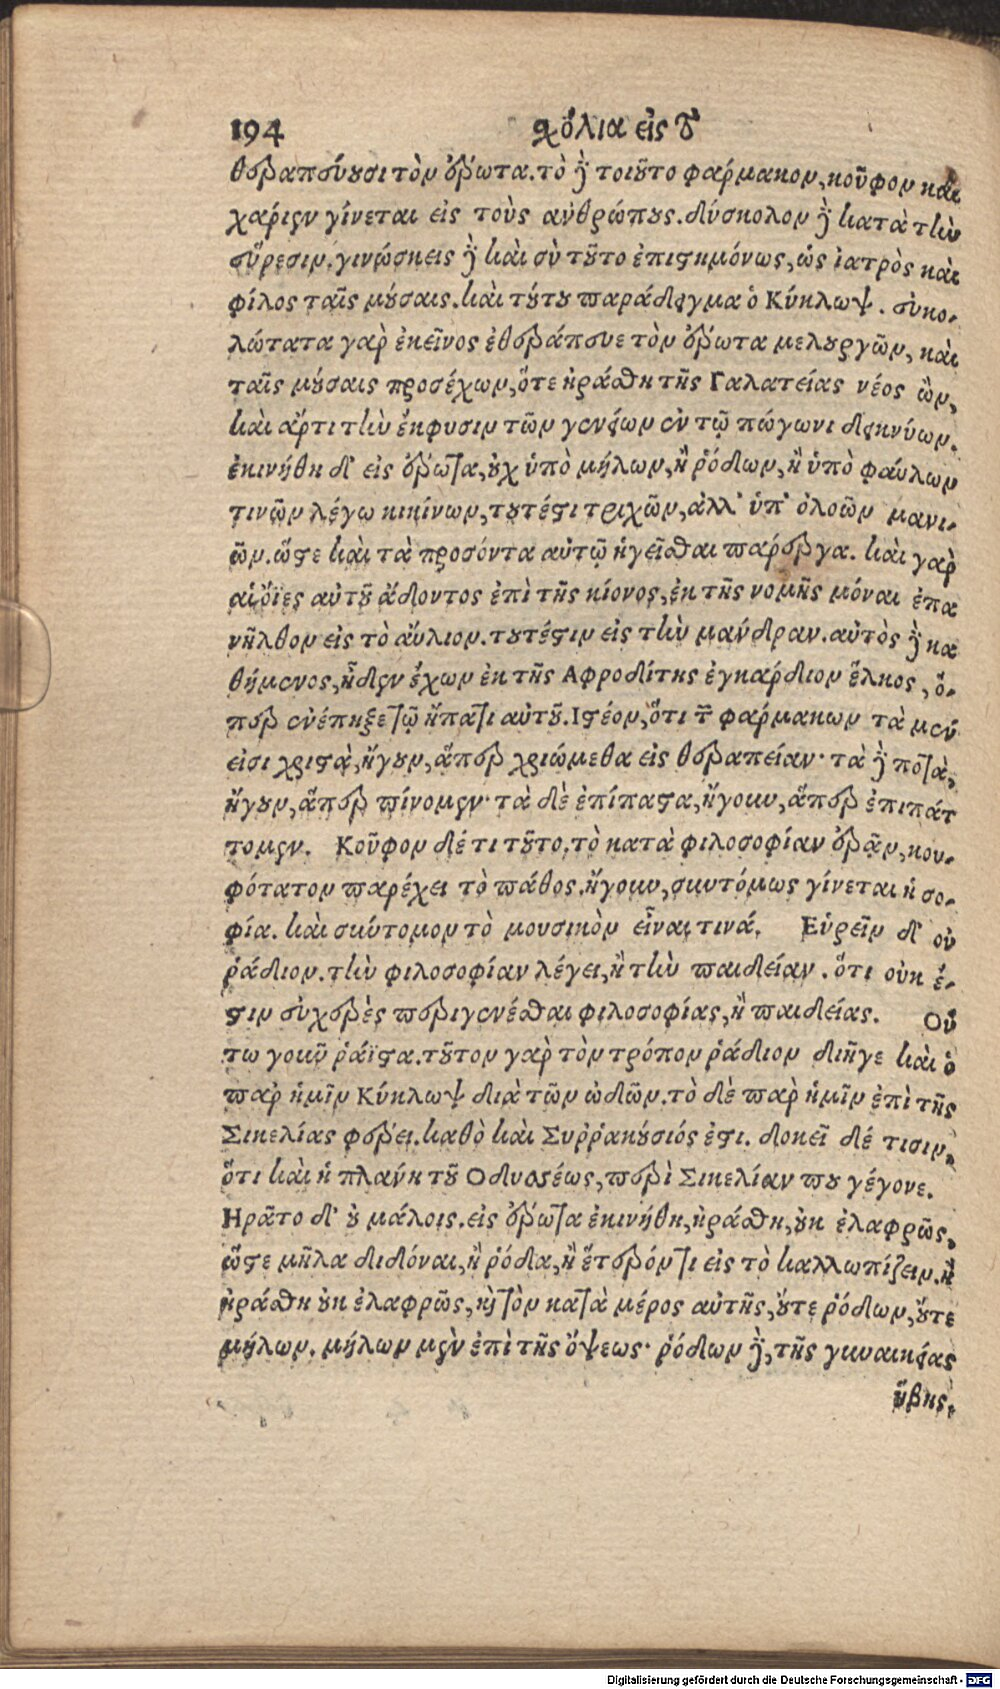 194 σχόλια εἰς τὸ
θεραπεύουσι τὸν ἔρωτα. τὸ δὲ τοιοῦτο φάρμακον, κοῦφον καὶ
χαρίεν γίνεται εἰς τοὺς ἀνθρώπους. δύσκολον δὲ κατὰ τὴν
εὕρεσιν. γινώσκεις δὲ καὶ σὺ τοῦτο ἐπιστημόνως, ὡς ἰατρὸς καὶ
φίλος ταῖς μούσαις. καὶ τούτου παράδειγμα ὁ Κύκλωψ. εὐκο-
λώτατα γὰρ ἐκεῖνος ἐθεράπευε τὸν ἔρωτα μελουργῶν, καὶ
ταῖς μούσαις προσέχων, ὅτε ἠράσθη τῆς Γαλατείας νέος ὢν,
καὶ ἄρτι τὴν ἔκφυσιν τῶν γενείων ἐν τῷ πώγωνι δεικνύων.
ἐκινήθη δ' εἰς ἔρωτα, οὐχ ὑπὸ μήλων, ἢ ῥόδων, ἢ ὑπὸ φαύλων
τινῶν λέγω κικίνων, τουτέστι τριχῶν, ἀλλ' ὑπ' ὀλοῶν μανι-
ῶν. ὥστε καὶ τὰ προσόντα αὐτῷ ἡγεῖσθαι πάρεργα. καὶ γὰρ
αἱ ὄϊες αὐτοῦ ᾄδοντος ἐπὶ τῆς κίονος, ἐκ τῆς νομῆς μόναι ἐπα
νῆλθον εἰς τὸ αὔλιον. τουτέστιν εἰς τὴν μάνδραν. αὐτὸς δὲ κα
θήμενος, ᾖδεν ἔχων ἐκ τῆς Αφροδίτης ἐγκάρδιον ἕλκος, ὅ-
περ ἐνέπηξε τῷ ἥπατι αὐτοῦ. Ιστέον, ὅτι τῶν φαρμάκων τὰ μέν
εἰσι χριστὰ, ἤγουν, ἅπερ χριώμεθα εἰς θεραπείαν· τὰ δὲ ποτὰ,
ἤγουν, ἅπερ πίνομεν· τὰ δὲ ἐπίπαστα, ἤγουν, ἅπερ ἐπιπάτ
τομεν. Κοῦφον δέ τι τοῦτο. τὸ κατὰ φιλοσοφίαν ἐρᾶν, κου-
φότατον παρέχει τὸ πάθος. ἤγουν, συντόμως γίνεται ἡ σο-
φία. καὶ σύντομον τὸ μουσικὸν εἶναι τινά. Εὑρεῖν δ' οὐ
ῥάδιον. τὴν φιλοσοφίαν λέγει, ἢ τὴν παιδείαν. ὅτι οὐκ ἔ-
στιν εὐχερὲς περιγενέσθαι φιλοσοφίας, ἢ παιδείας. Οὕ
τω γοῦν ῥάϊστα. τοῦτον γὰρ τὸν τρόπον ῥάδιον διῆγε καὶ ὁ
παρ ἡμῖν Κύκλωψ διὰ τῶν ὠδῶν. τὸ δὲ παρ ἡμῖν ἐπὶ τῆς
Σικελίας φέρει. καθὸ καὶ Συῤῥακούσιός ἐστι. δοκεῖ δέ τισιν,
ὅτι καὶ ἡ πλάνη τοῦ Οδυσσέως, περὶ Σικελίαν που γέγονε.
Ηρᾶτο δ' οὐ μάλοις. εἰς ἔρωτα ἐκινήθη, ἠράσθη, οὐκ ἐλαφρῶς,
ὥστε μῆλα διδόναι, ἢ ῥόδα, ἢ ἕτερόν τι εἰς τὸ καλλωπίζειν. ἢ
ἠράσθη οὐκ ἐλαφρῶς, ἢ τὸν κατὰ μέρος αὐτῆς, οὔτε ῥόδων, οὔτε
μήλων. μήλων μὲν ἐπὶ τῆς ὄψεως· ῥόδων δὲ, τῆς γυναικείας
ἥβης.
Digitalisierung gefördert durch die Deutsche Forschungsgemeinschaft - DFG